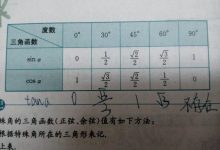 度数
三角函数 0° 30° 45° 60° 90°
sin α 0 1/2 √2/2 √3/2 1
cos α 1 √3/2 √2/2 1/2 0
tanα 0 √3/3 1 √3 不存在
殊角的三角函数(正弦、余弦)值有如下方法:
根据特殊角所在的三角形来记.
上来.